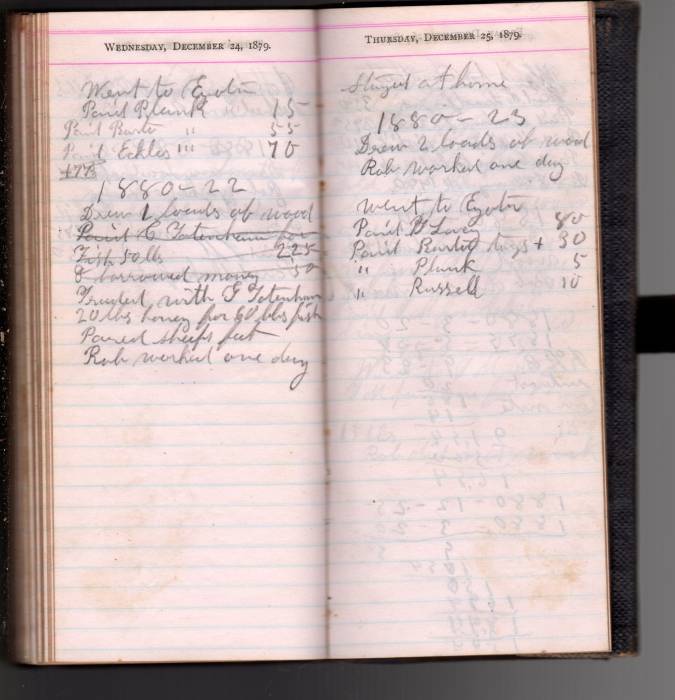 WEDNESDAY, DECEMBER 24, 1879.
Went to
Paid Plank 15
Paid Barto " 55
Paid Eckles "" 70
1880-22
Drew 1 loads of wood
Paid C Tatenham for
Fish 50 lbs 225
& borrowed money 50
Traded with G Tatenham
20 lbs honey for 60 lbs fish
Paired sheeps feet
Rob worked one day
THURSDAY, DECEMBER 25, 1879.
Stayed at home
1880-23
Drew 2 loads of wood
Rob worked one day
Went to
Paid 80
Paid Barto + 30
" Plank 5
" Russell 10